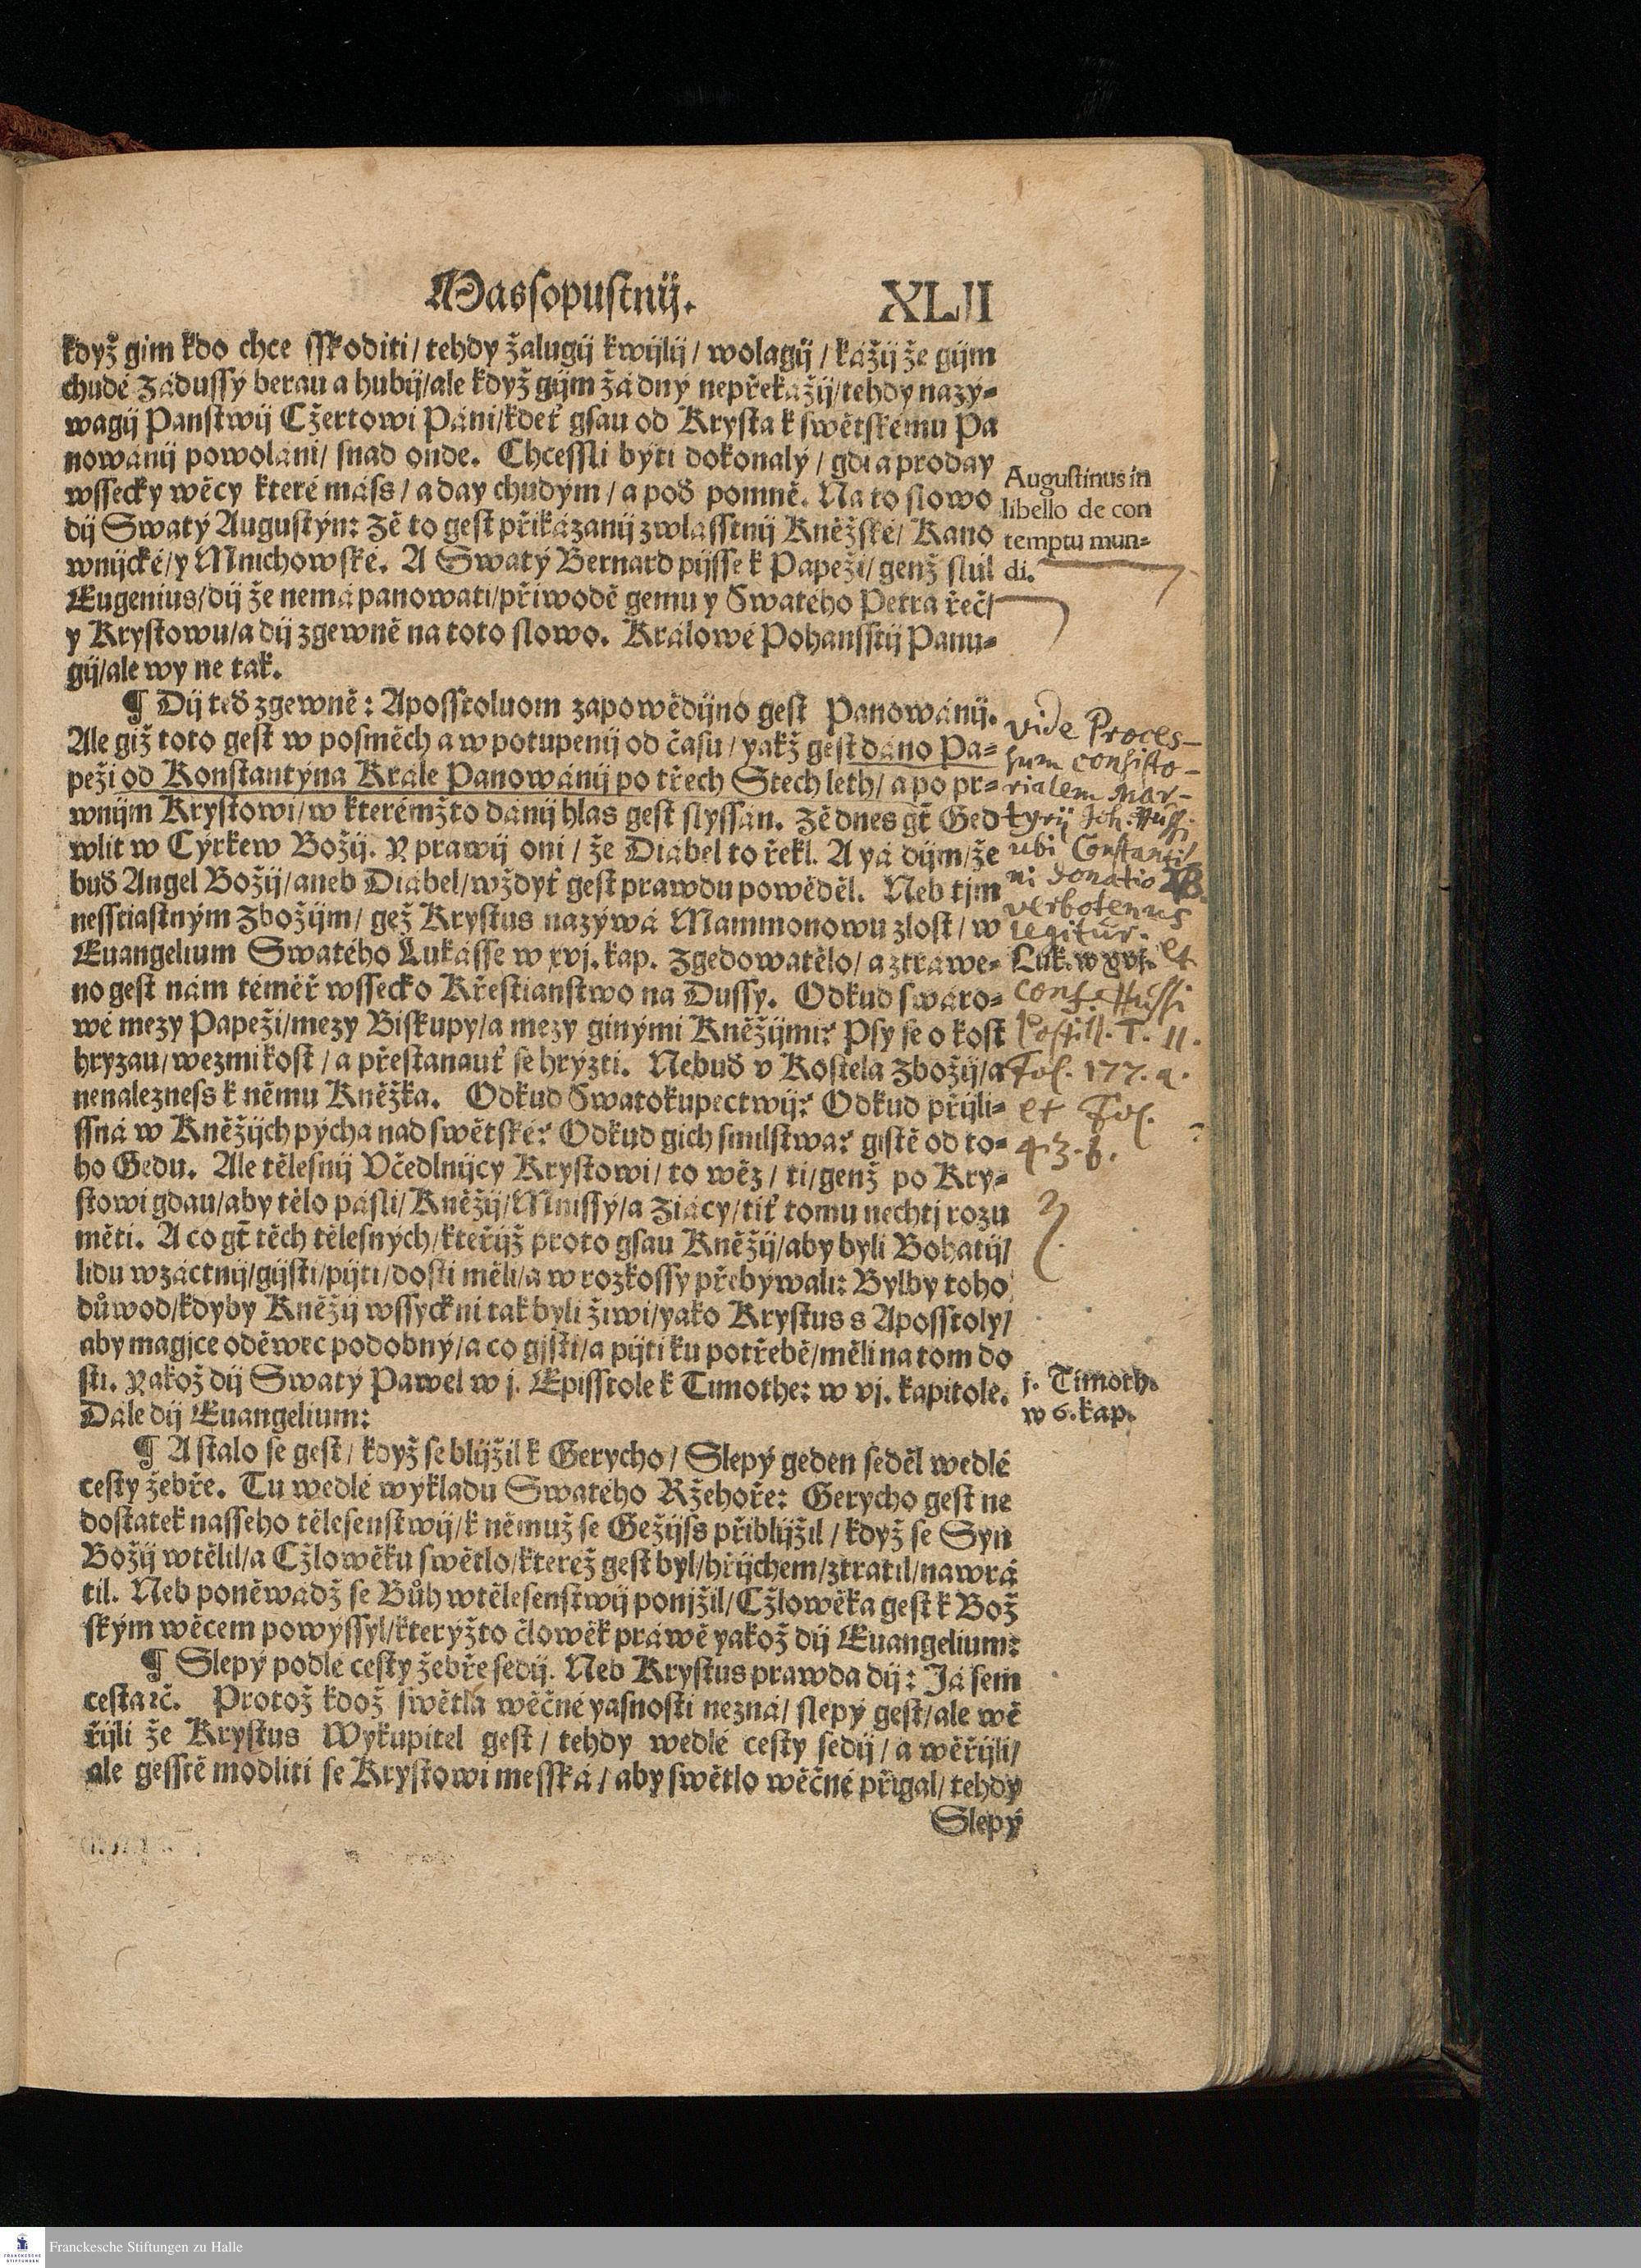 Massopustnij.
XLII
když gim kdo chce sskoditi / tehdy žalugij kwijlij / wolagij / kážij že gijm
chudé Zádussý berau a hubij / ale když gijm žádný nepřekážij / tehdy nazý-
wagij Panstwij Cžertowi Páni / kdeť gsau od Krysta k swětskému Pa
nowánij powoláni / snad onde. Chcessli býti dokonalý / gdi a proday
wssecky wěcy které máss / a day chudým / a poď pomně. Na to slowo
dij Swatý Augustýn: Zě to gest přikázanij zwlásstnij Kněžské / Kano
wnijcké / y Mnichowské. A Swatý Bernard pijsse k Papeži / genž slul
Eugenius / dij že nemá panowati / přiwodě gemu y Swatého Petra řeč /
y Krystowu / a dij zgewně na toto slowo. Králowé Pohansstij Panu-
gij / ale wy ne tak.
Augustinus in
libello de con
temptu mun-
di.
¶ Dij teď zgewně: Aposstoluom zapowědijno gest Panowánij.
Ale giž toto gest w posměch a w potupenij od času / yakž gest dáno Pa-
peži od Konstantýna Krále Panowánij po třech Stech leth / a po pr-
wnijm Krystowi / w kterémžto dánij hlas gest slyssán. Zě dnes gt̄ Ged
wlit w Cýrkew Božij. Y prawij oni / že Diábel to řekl. A yá dijm / že
buď Angel Božij / aneb Diábel / wždyť gest prawdu powěděl. Neb tjm
nesstiastným Zbožijm / gež Krystus nazýwá Mammonowu zlost / w
Euangelium Swatého Lukásse w xvj. kap. Zgedowatělo / a ztráwe-
no gest nám téměř wssecko Křestianstwo na Dussy. Odkud swáro-
wé mezy Papeži / mezy Biskupy / a mezy ginými Kněžijmi? Psy se o kost
hryzau / wezmi kost / a přestanauť se hrýzti. Nebuď v Kostela Zbožij / a
nenalezness k němu Kněžka. Odkud Swatokupectwij? Odkud přijli-
ssná w Kněžijch pýcha nad swětské? Odkud gich smilstwa? gistě od to-
ho Gedu. Ale tělesnij Včedlnijcy Krystowi / to wěz / ti / genž po Kry-
stowi gdau / aby tělo pásli / Kněžij / Mnissý / a Ziácy / tiť tomu nechtj rozu
měti. A co gt̄ těch tělesných / kteřijž proto gsau Kněžij / aby byli Bohatij /
lidu wzáctnij / gijsti / pijti / dosti měli / a w rozkossy přebýwali: Bylby toho
důwod / kdyby Kněžij wssyckni tak byli žiwi / yako Krystus s Aposstoly /
aby magjce oděwec podobný / a co gjsti / a pijti ku potřebě / měli na tom do
sti. Yakož dij Swatý Pawel w j. Episstole k Timothe: w vj. kapitole.
Dále dij Euangelium:
vide Proces-
sum consisto-
rialem Mar-
tyrij Joh. Hussi
ubi Constanti-
ni donatio
verbotenus
legitur.
Luk. w xvj. et
conf. Hussi
Postill. T. II.
Fol. 177. a.
et Fol.
43. b.
j. Timoth.
w 6. kap.
¶ A stalo se gest / když se blijžil k Gerycho / Slepý geden seděl wedlé
cesty žebře. Tu wedlé wýkladu Swatého Ržehoře: Gerycho gest ne
dostatek nasseho tělesenstwij / k němuž se Gežijss přiblijžil / když se Syn
Božij wtělil / a Cžlowěku swětlo / kterež gest byl / hřijchem / ztratil / nawrá
til. Neb poněwadž se Bůh wtělesenstwij ponjžil / Cžlowěka gest k Bož
ským wěcem powýssyl / kterýžto člowěk práwě yakož dij Euangelium:
¶ Slepý podle cesty žebře sedij. Neb Krystus prawda dij: Já sem
cesta ꝛč. Protož kdož swětla wěčné yasnosti nezná / slepý gest / ale wě
řijli že Krystus Wykupitel gest / tehdy wedlé cesty sedij / a wěřijli /
ale gesstě modliti se Krystowi messká / aby swětlo wěčné přigal / tehdy
Slepý
Franckesche Stiftungen zu Halle
FRANCKESCHE
STIFTUNGEN